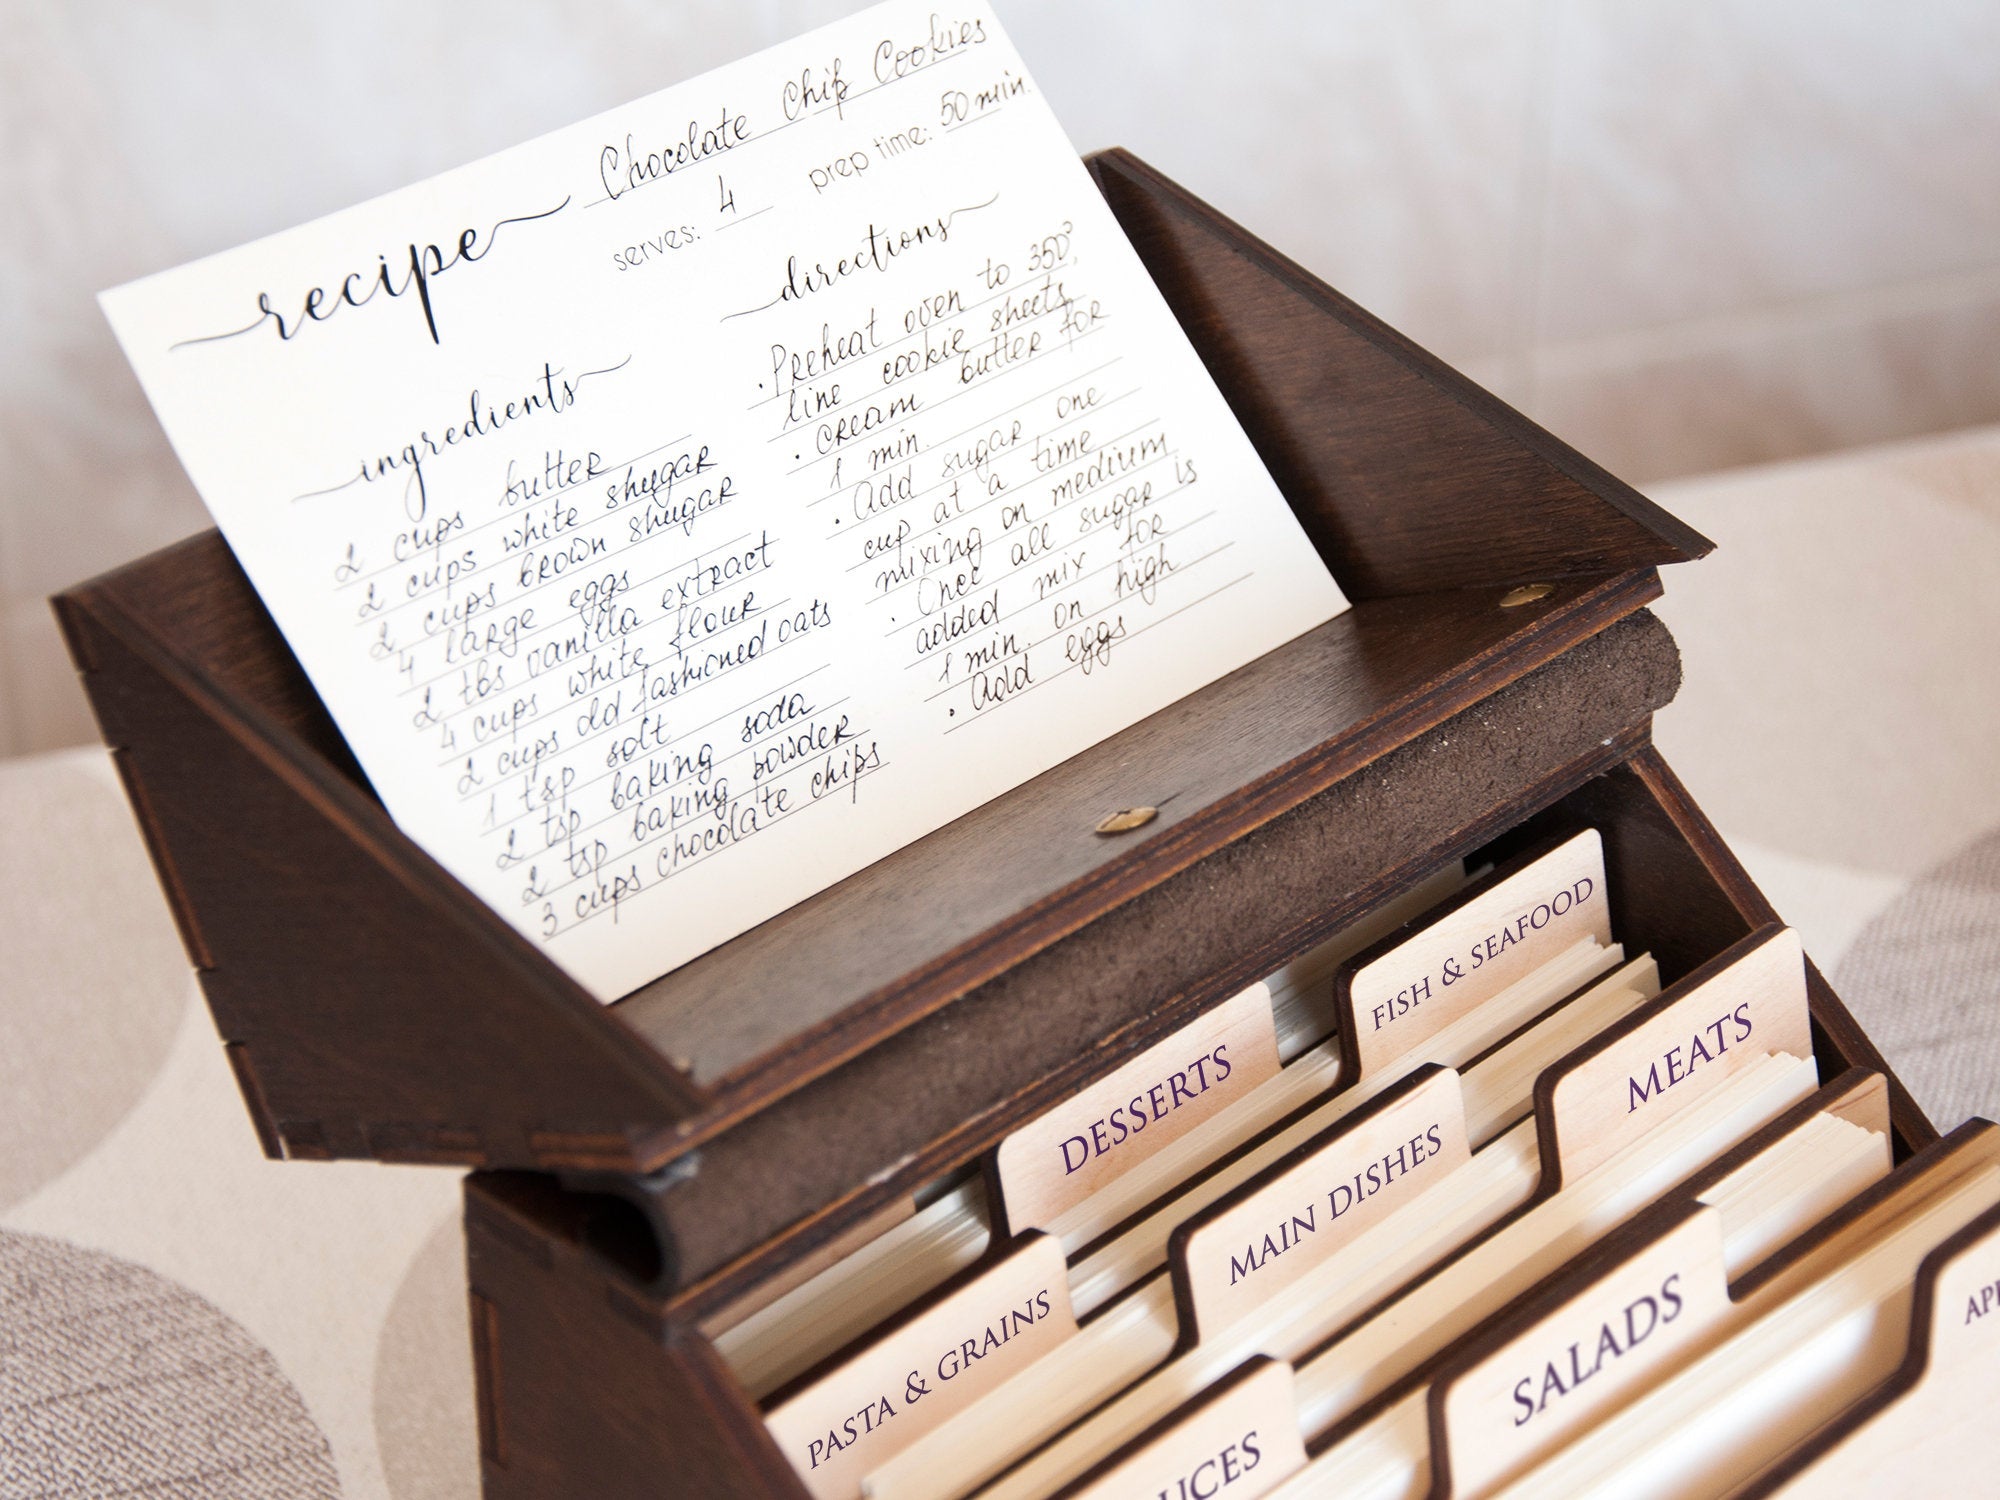 recipe Chocolate Chip Cookies
serves: 4 prep time: 50 min.
ingredients
2 cups butter
2 cups white shugar
2 cups brown shugar
4 large eggs
2 tbs vanilla extract
4 cups white flour
2 cups old fashioned oats
1 tsp salt
2 tsp baking soda
2 tsp baking powder
3 cups chocolate chips
directions
· Preheat oven to 350°,
line cookie sheets
· cream butter for
1 min.
· Add sugar one
cup at a time
mixing on medium
· Once all sugar is
added mix for
1 min. on high
· Add eggs
FISH & SEAFOOD
DESSERTS
MEATS
MAIN DISHES
PASTA & GRAINS
SALADS
UCES
AP